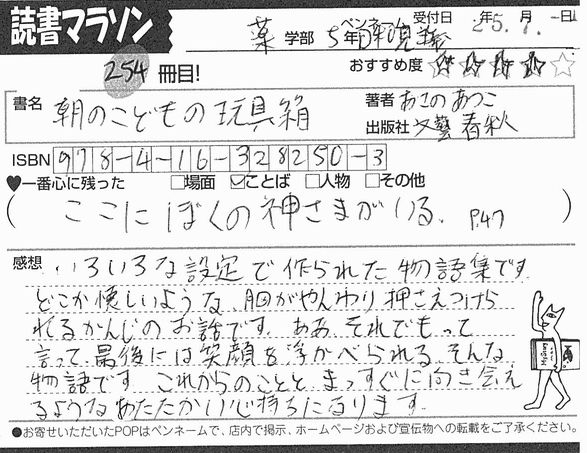 読書マラソン
薬 学部 5年 ペンネーム
受付日 25年 1月 日
254 冊目!
おすすめ度 ★★★★☆
書名 朝のこどもの玩具箱
著者 あさのあつこ
出版社 文藝春秋
ISBN 978-4-16-328250-3
♥一番心に残った □場面 ☑ことば □人物 □その他
(ここにぼくの神さまがいる。 P.47)
感想 いろいろな設定で作られた物語集です。
どこか懐しいような、胸がやんわり押さえつけら
れるかんじのお話です。ああ、それでもって
言って、最後には笑顔を浮かべられる、そんな
物語です。これからのことと、まっすぐに向き会え
るようなあたたかい心持ちになります。
●お寄せいただいたPOPはペンネームで、店内で掲示、ホームページおよび宣伝物への転載をご了承ください。